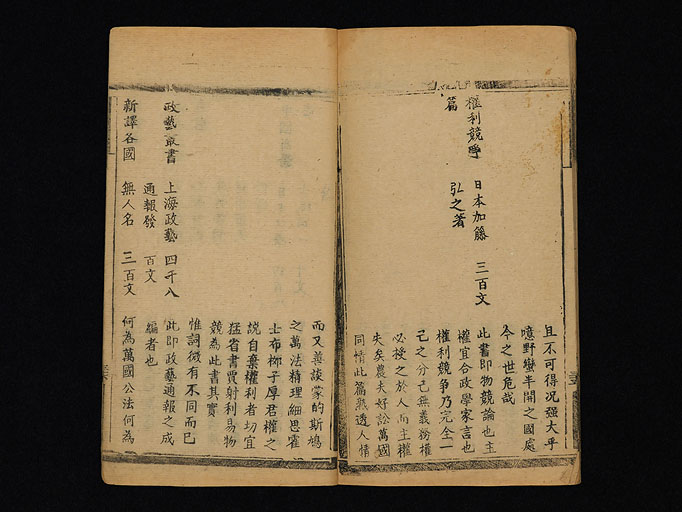 且不可得况強大乎
噫野蠻半開之國處
今之世危哉
權利競爭 日本加藤 三百文
篇 弘之著
此書即物競論也主
權宜合政學家言也
權利競爭乃完全一
己之分己無義務權
必授之於人而主權
失矣農夫好訟萬國
同情此篇熟透人情
而又善談蒙的斯鳩
之萬法精理細思霍
士布栁子厚君權之
說自棄權利者切宜
猛省書賈射利易物
競為此書其實
惟詞微有不同而已
政藝叢書 上海政藝 四千八
通報發 百文
此即政藝通報之成
編者也
新譯各國 無人名 三百文 何為萬國公法何為